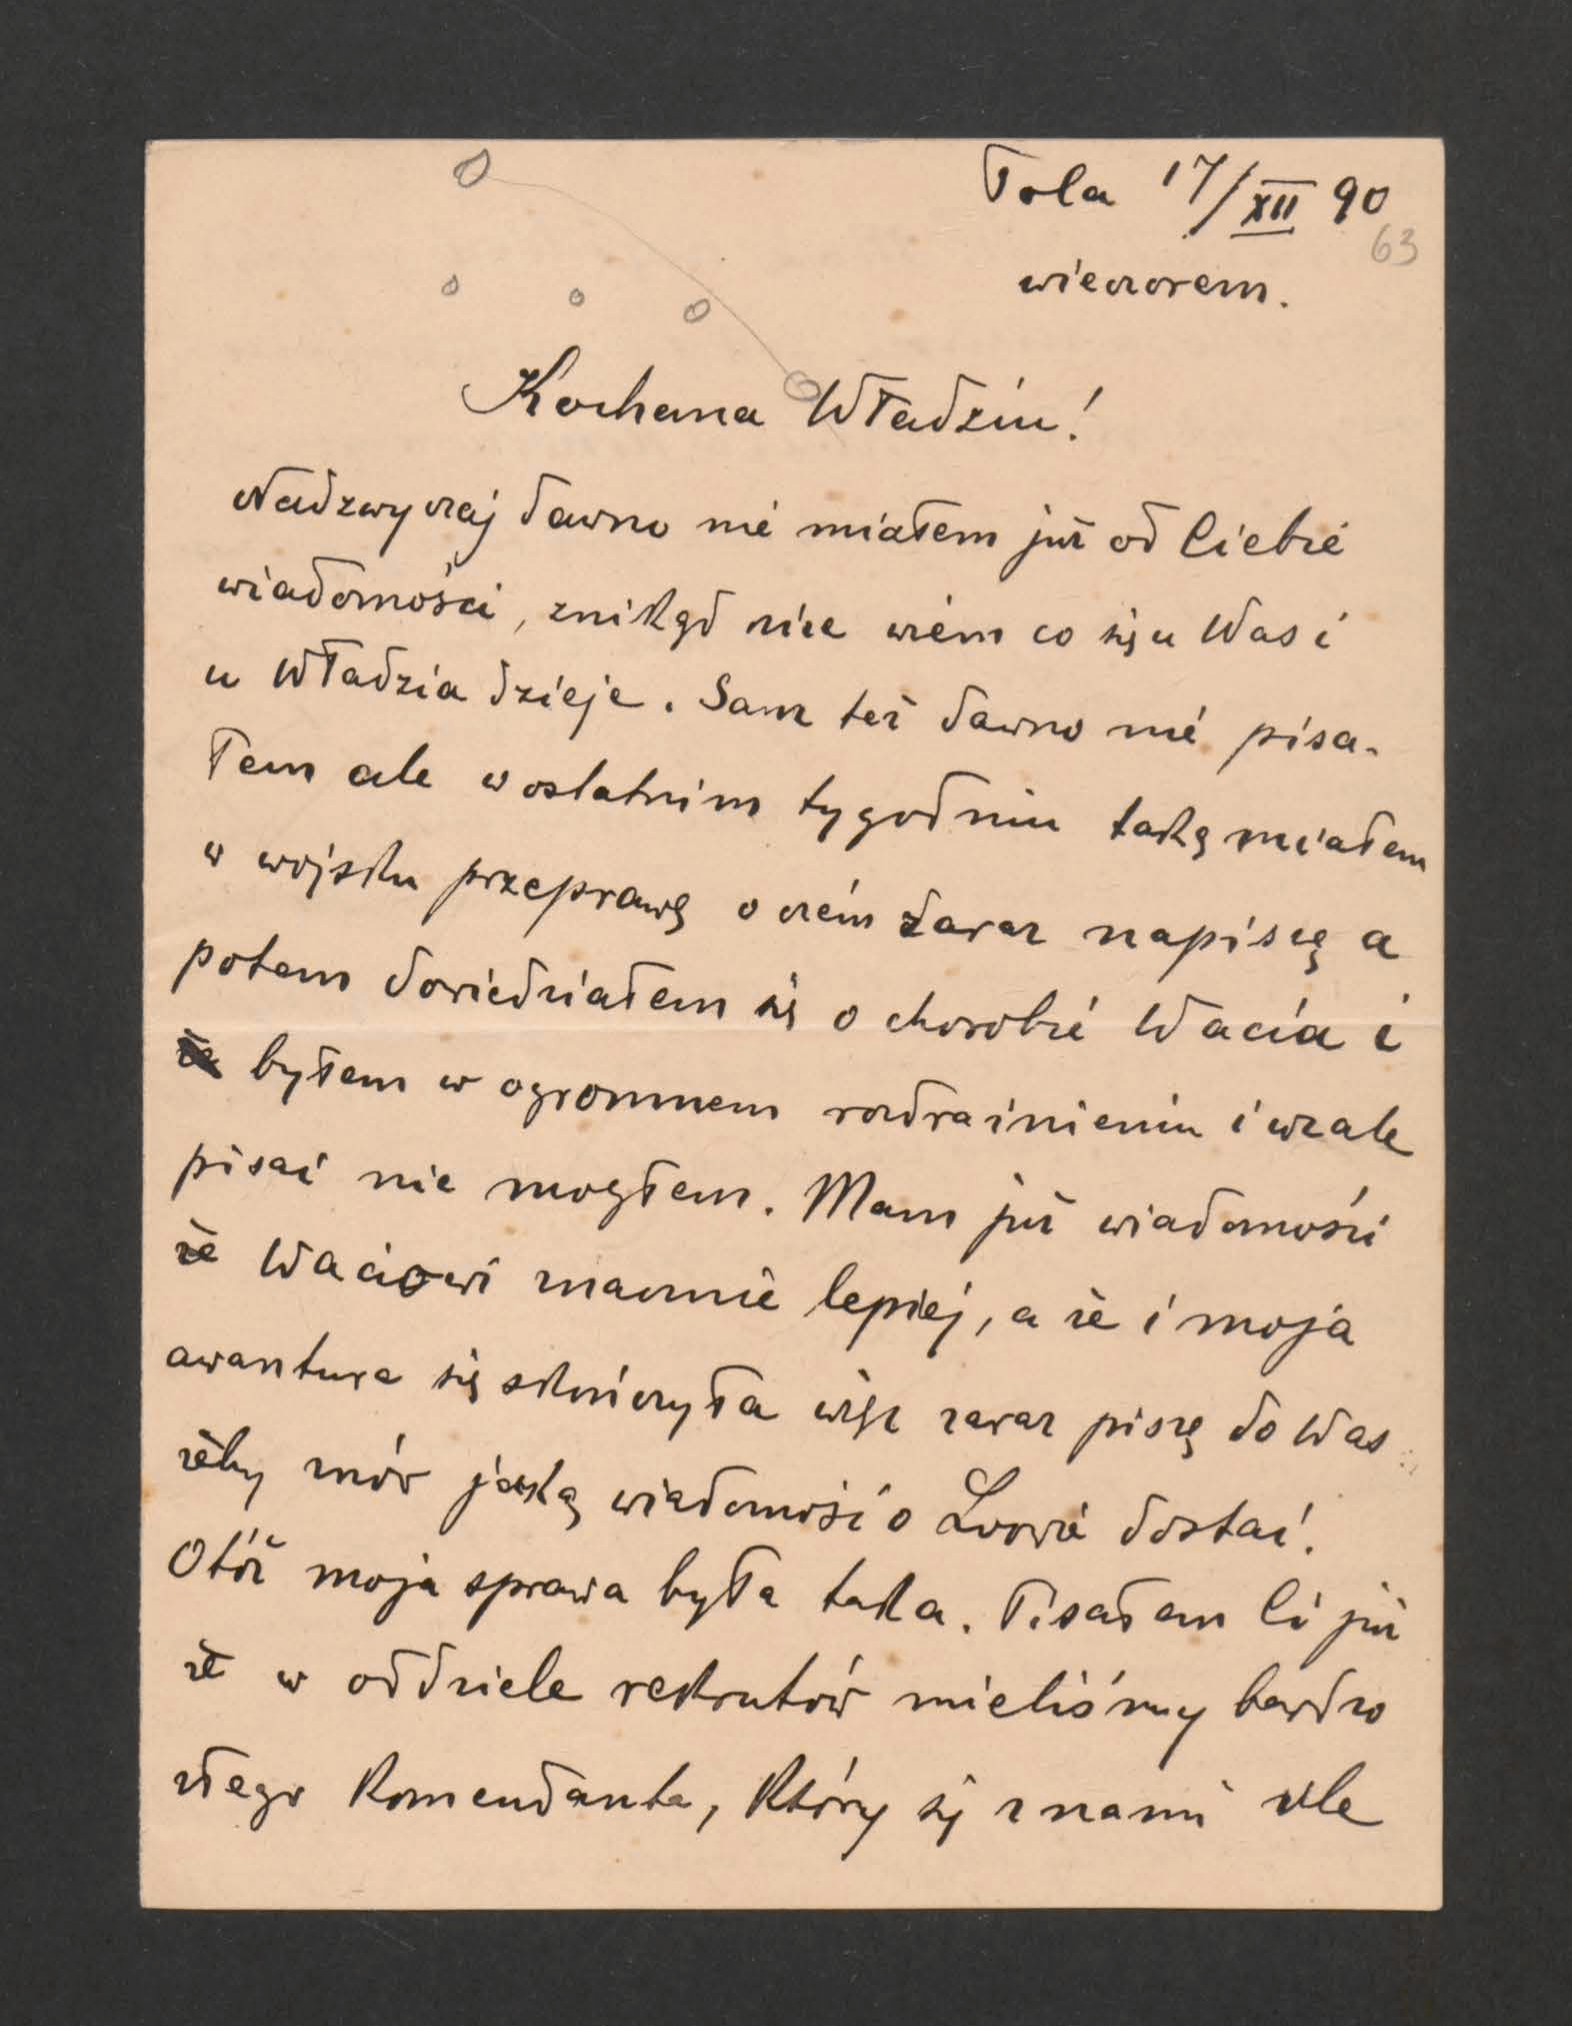 Pola 17/XII 90
63
wieczorem.
Kochana Władziu!
Nadzwyczaj dawno nie miałem już od Ciebie
wiadomości, znikąd nie wiem co się u Was i
u Władzia dzieje. Sam też dawno nie pisa-
łem ale w ostatnim tygodniu taką miałem
w wojsku przeprawę o czém zaraz napiszę a
potem dowiedziałem się o chorobie Wacia i
byłem w ogromnem rozdrażnieniu i wcale
pisać nie mogłem. Mam już wiadomości
że Waciowi znacznie lepiej, a że i moja
awantura się skończyła więc zaraz piszę do Was
żeby znów jaką wiadomość o Lwowie dostać.
Otóż moja sprawa była taka. Pisałem Ci już
że w oddziele rekrutów mieliśmy bardzo
złego komendanta, który się z nami źle